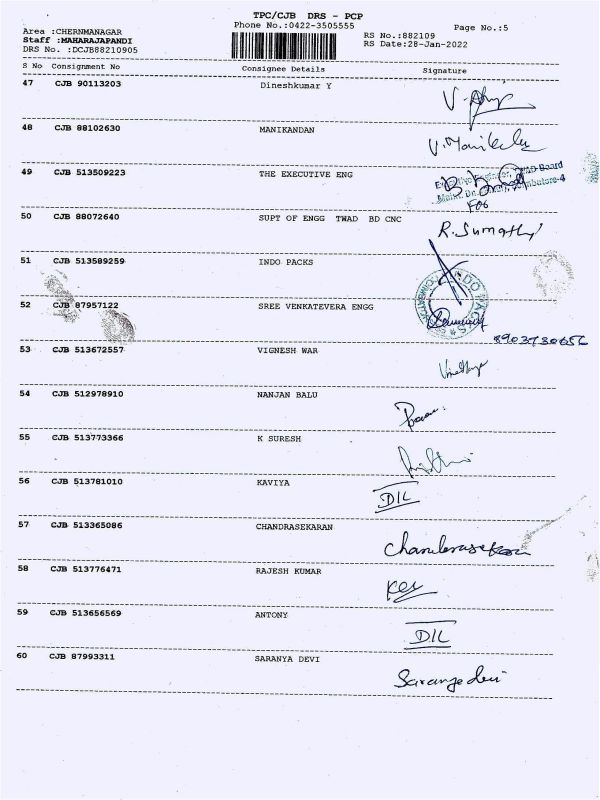 TPC/CJB DRS - PCP
Phone No.:0422-3505555
Page No.:5
Area :CHERNMANAGAR
Staff :MAHARAJAPANDI
DRS No. :DCJB88210905
RS No.:882109
RS Date:28-Jan-2022
S No Consignment No Consignee Details Signature
47 CJB 90113203 Dineshkumar Y
48 CJB 88102630 MANIKANDAN
49 CJB 513509223 THE EXECUTIVE ENG
50 CJB 88072640 SUPT OF ENGG TWAD BD CNC R.Sumathy
51 CJB 513589259 INDO PACKS
52 CJB 87957122 SREE VENKATEVERA ENGG
53 CJB 513672557 VIGNESH WAR
54 CJB 512978910 NANJAN BALU
55 CJB 513773366 K SURESH
56 CJB 513781010 KAVIYA DIL
57 CJB 513365086 CHANDRASEKARAN
58 CJB 513776471 RAJESH KUMAR
59 CJB 513656569 ANTONY DIL
60 CJB 87993311 SARANYA DEVI